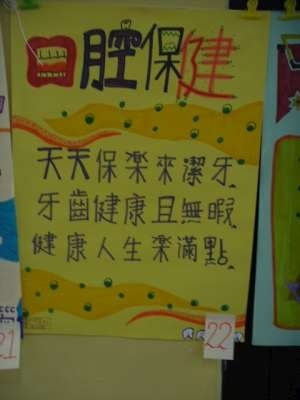 口腔保健
天天保楽來潔牙、
牙齒健康且無暇、
健康人生楽滿點、
22
21